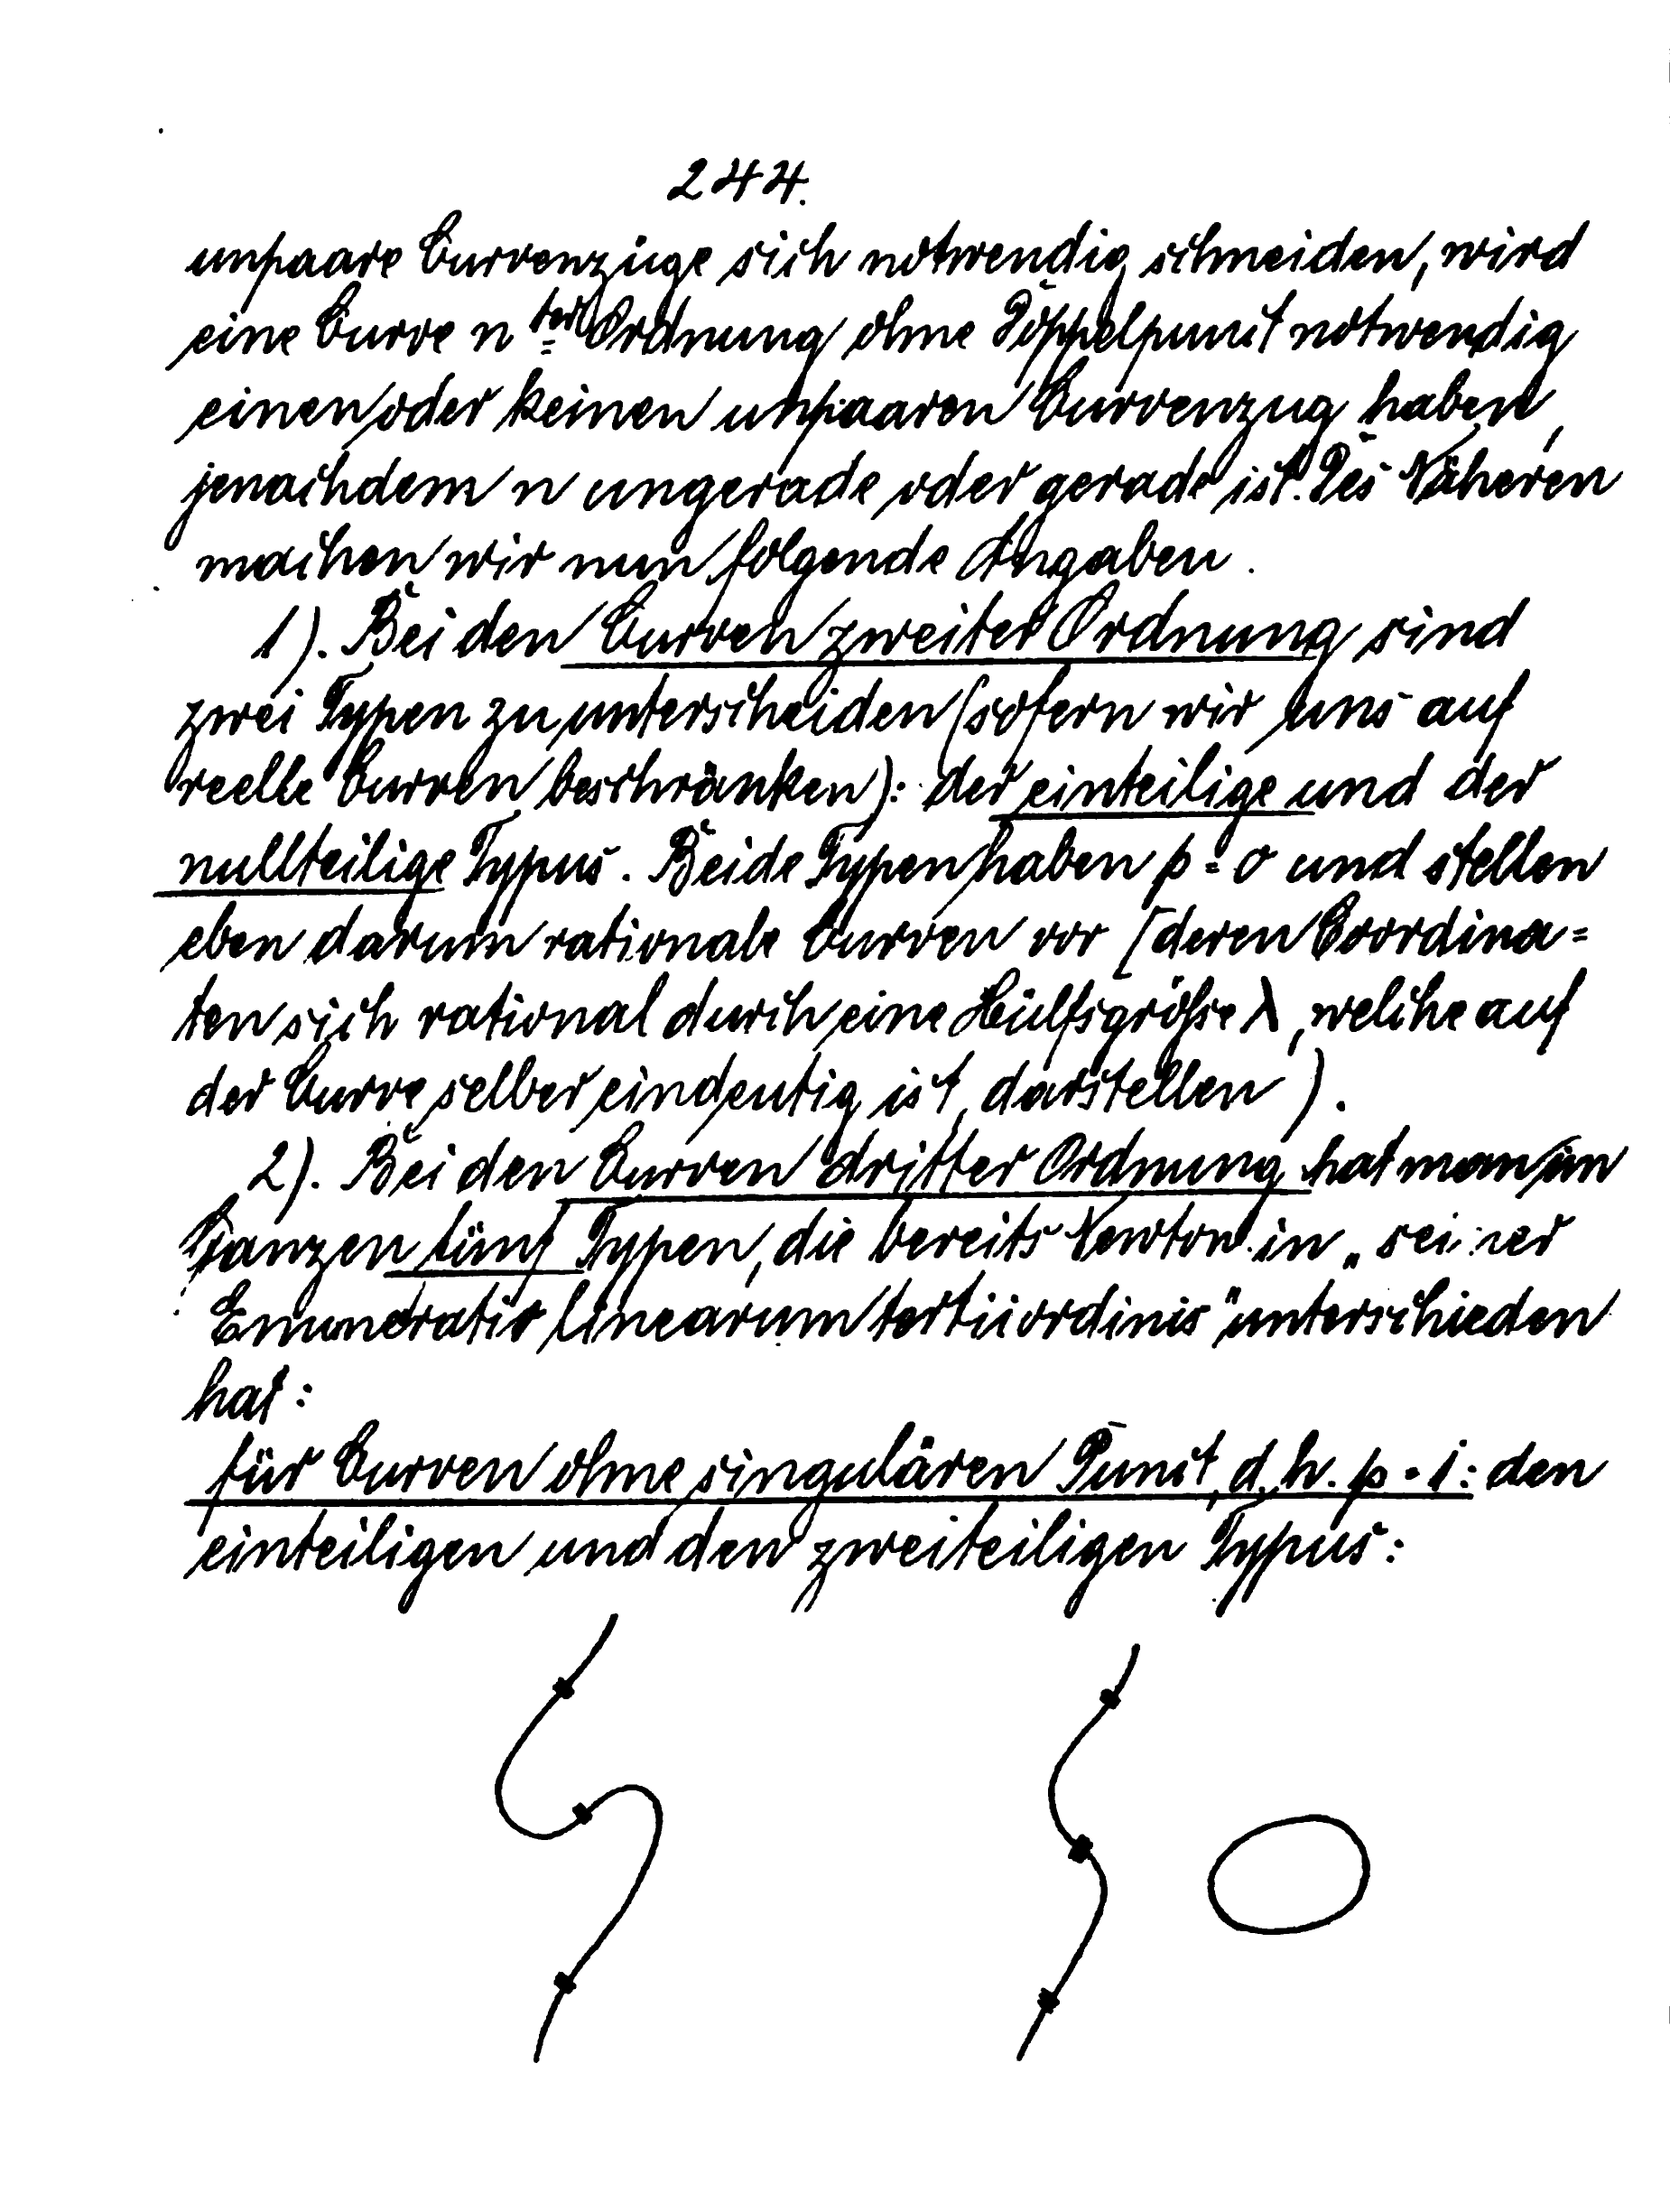 244.
unpaare Curvenzüge sich notwendig schneiden, wird
eine Curve n ter Ordnung ohne Doppelpunct notwendig
einen oder keinen unpaaren Curvenzug haben,
jenachdem n ungerade oder gerade ist. Des Näheren
machen wir nun folgende Angaben.
1). Bei den Curven zweiter Ordnung sind
zwei Typen zu unterscheiden (sofern wir uns auf
reelle Curven beschränken): der einteilige und der
nullteilige Typus. Beide Typen haben p = 0 und stellen
eben darum rationale Curven vor (deren Coordina=
ten sich rational durch eine Hülfsgröße λ, welche auf
der Curve selber eindeutig ist, darstellen).
2). Bei den Curven dritter Ordnung hat man im
Ganzen fünf Typen, die bereits Newton in „seiner
Enumeratio linearum tertii ordinis" unterschieden
hat:
für Curven ohne singulären Punct, d. h. p = 1: den
einteiligen und den zweiteiligen Typus: